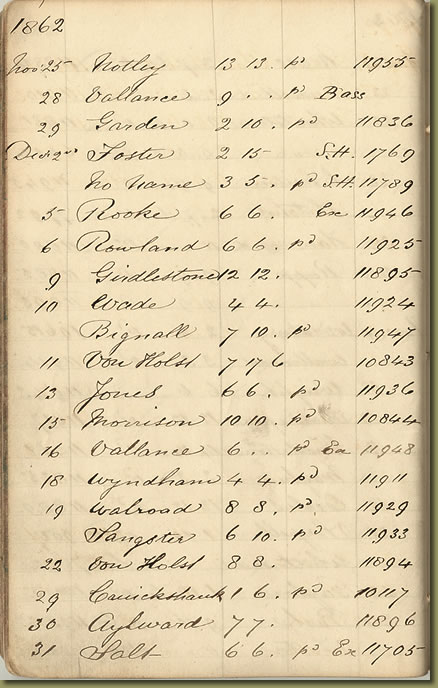 1862
Nov 25 Notley 13 13 . pd 11955
28 Vallance 9 . . pd Bass
29 Garden 2 10 . pd 11836
Decr 2nd Foster 2 15 S.H. 1769
No Name 3 5 . pd S.H. 11789
5 Rooke 6 6 . Ex 11946
6 Rowland 6 6 . pd 11925
9 Girdlestone 12 12 . 11895
10 Wade 4 4 . 11924
Bignall 7 10 . pd 11947
11 Von Holst 7 17 6 10843
13 Jones 6 6 . pd 11936
15 Morrison 10 10 . pd 10844
16 Vallance 6 . . pd Ex 11948
18 Wyndham 4 4 . pd 11911
19 Walroad 8 8 . pd 11929
Sangster 6 10 . pd 11933
22 Von Holst 8 8 . 11894
29 Cruickshank 1 6 . pd 10117
30 Aylward 7 7 . 11896
31 Salt 6 6 . pd Ex 11705